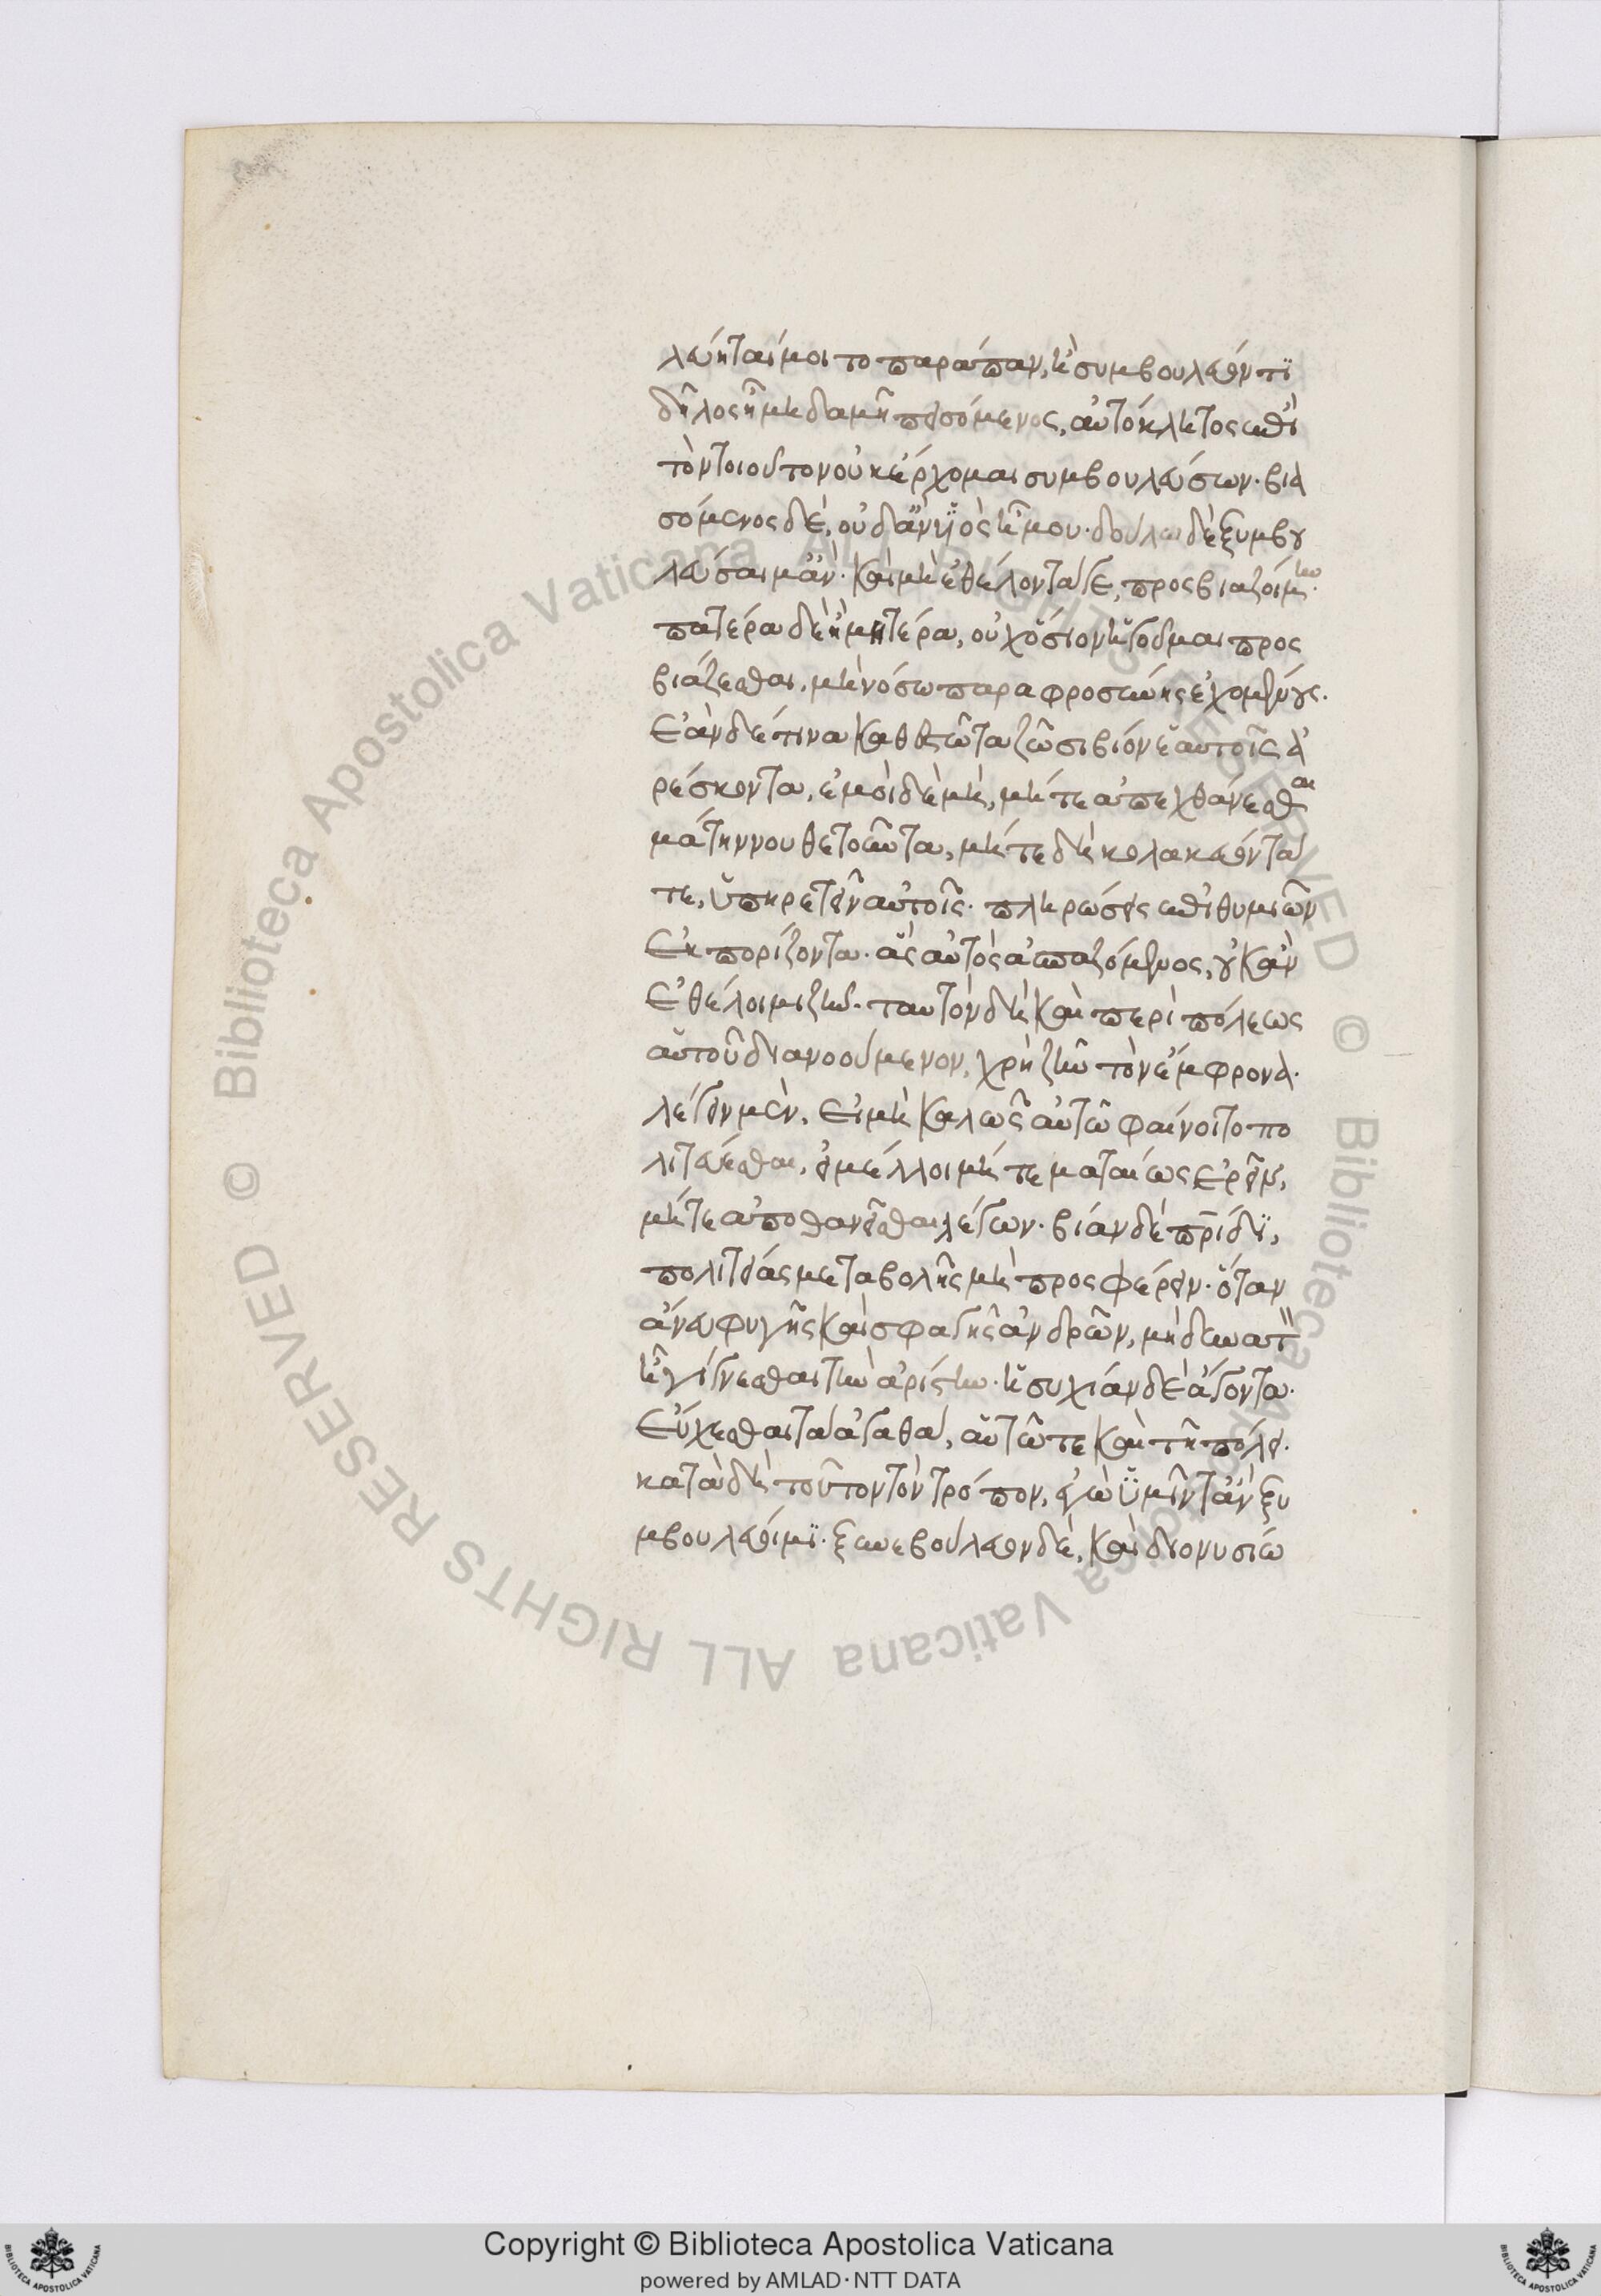 λεύηταί μοι τὸ παράπαν, ἢ συμβουλεύοντι
δῆλος ᾖ μηδαμῆ πεισόμενος, αὐτόκλητος ἐπὶ
τὸν τοιοῦτον οὐκ ἔρχομαι συμβουλεύσων· βια
σόμενος δὲ, οὐδ' ἂν ὑὸς ᾖ μου· δούλω δὲ ξυμβου
λεύσαιμ' ἄν· καὶ μὴ ἐθέλοντά γε, προσβιαζοίμην·
πατέρα δὲ ἢ μητέρα, οὐχ ὅσιον ἡγοῦμαι προσ
βιάζεσθαι, μὴ νόσω παραφροσύνης ἐχομένους.
Ἐὰν δέ τινα καθεστῶτα ζῶσι βίον ἑαυτοῖς ἀ
ρέσκοντα, ἐμοὶ δὲ μὴ, μήτε ἀπεχθάνεσθαι
μάτην νουθετοῦντα, μήτε δὴ κολακεύοντά
τε, ὑπηρετεῖν αὐτοῖς· πληρώσεις ἐπιθυμιῶν
Ἐκπορίζοντα· ἃς αὐτὸς ἀσπαζόμενος, οὐκ ἂν
Ἐθέλοιμι ζῆν· ταυτὸν δὴ καὶ περὶ πόλεως
αὑτοῦ διανοούμενον, χρὴ ζῆν τὸν ἔμφρονα·
λέγειν μὲν, εἰ μὴ καλῶς αὐτῶ φαίνοιτο πο
λιτεύεσθαι, εἰ μέλλοι μήτε ματαίως ἐρεῖν,
μήτε ἀποθανεῖσθαι λέγων· βίαν δὲ πρίδι,
πολιτείας μεταβολῆς μὴ προσφέρειν· ὅταν
ἄνευ φυγῆς καὶ σφαγῆς ἀνδρῶν, μὴ δυνατ
ᾖ γίγνεσθαι τὴν ἀρίστην· ἡσυχίαν δὲ ἄγοντα·
Εὔχεσθαι τὰ ἀγαθὰ, αὑτῶ τε καὶ τῆ πόλει·
κατὰ δὴ τοῦτον τὸν τρόπον, ἐγὼ ὑμῖν τ' ἂν ξυ
μβουλεύοιμι· ξυνεβούλευον δὲ, καὶ διονυσίω